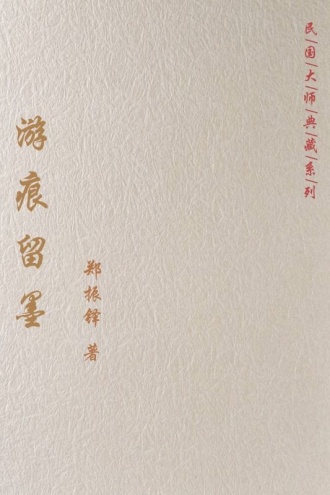 民国大师典藏系列
游痕留墨
郑振铎 著